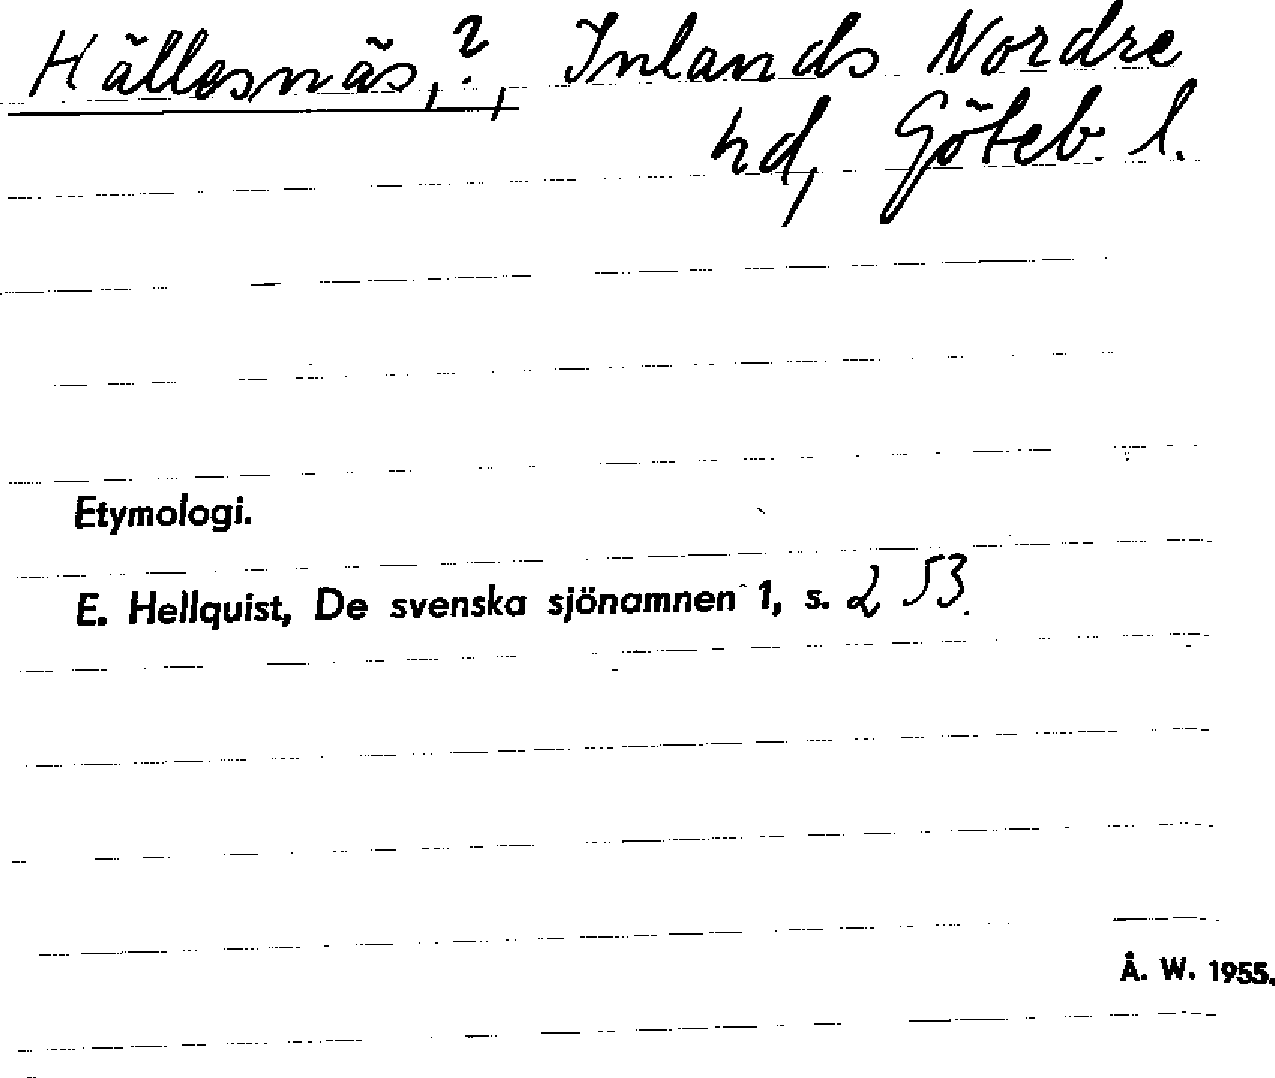 Hällesnäs, ?, Inlands Nordre
hd, Göteb. l.
Etymologi.
E. Hellquist, De svenska sjönamnen 1, s. 253.
Å. W. 1955.